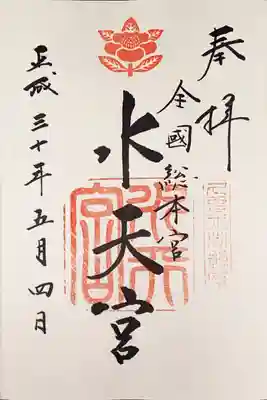 奉拝
全國総本宮
水天宮
平成三十年五月四日